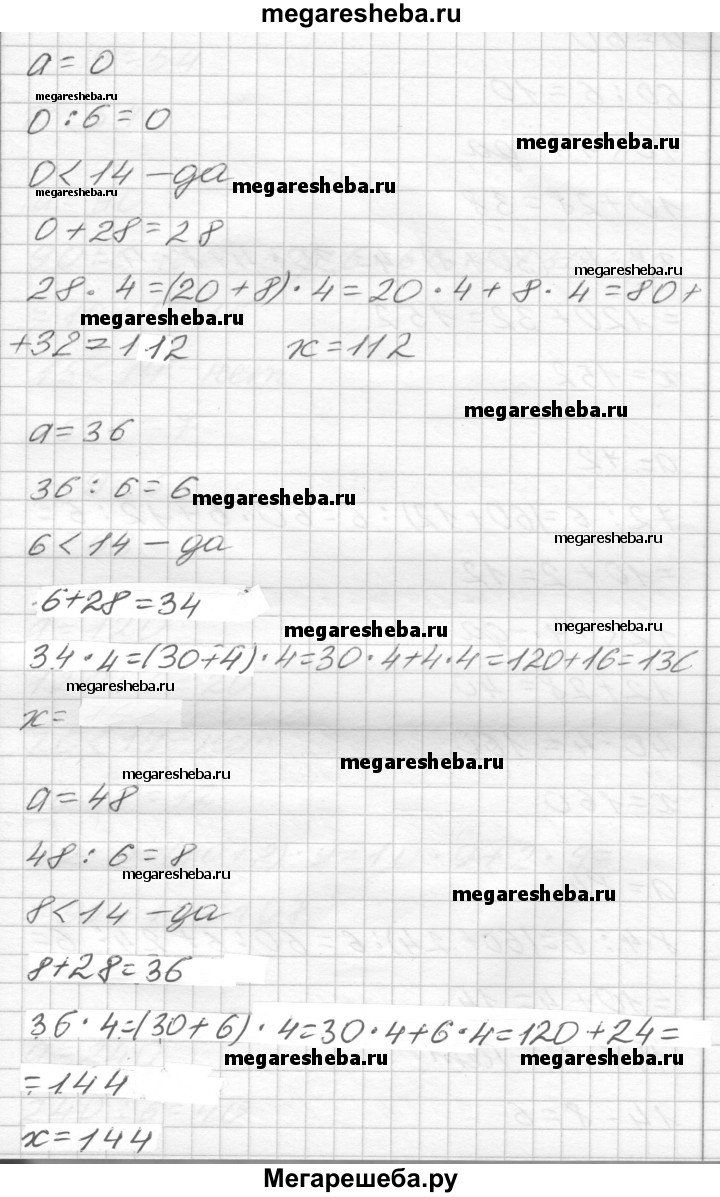 megaresheba.ru
a = 0
megaresheba.ru
0 : 6 = 0
megaresheba.ru
0 < 14 - да
megaresheba.ru
megaresheba.ru
0 + 28 = 28
megaresheba.ru
28 · 4 = (20 + 8) · 4 = 20 · 4 + 8 · 4 = 80 +
megaresheba.ru
+ 32 = 112 x = 112
megaresheba.ru
a = 36
36 : 6 = 6
megaresheba.ru
6 < 14 - да
megaresheba.ru
6 + 28 = 34
megaresheba.ru
megaresheba.ru
34 · 4 = (30 + 4) · 4 = 30 · 4 + 4 · 4 = 120 + 16 = 136
megaresheba.ru
x =
megaresheba.ru
megaresheba.ru
a = 48
48 : 6 = 8
megaresheba.ru
megaresheba.ru
8 < 14 - да
8 + 28 = 36
36 · 4 = (30 + 6) · 4 = 30 · 4 + 6 · 4 = 120 + 24 =
megaresheba.ru
megaresheba.ru
= 144
x = 144
Мегарешеба.ру